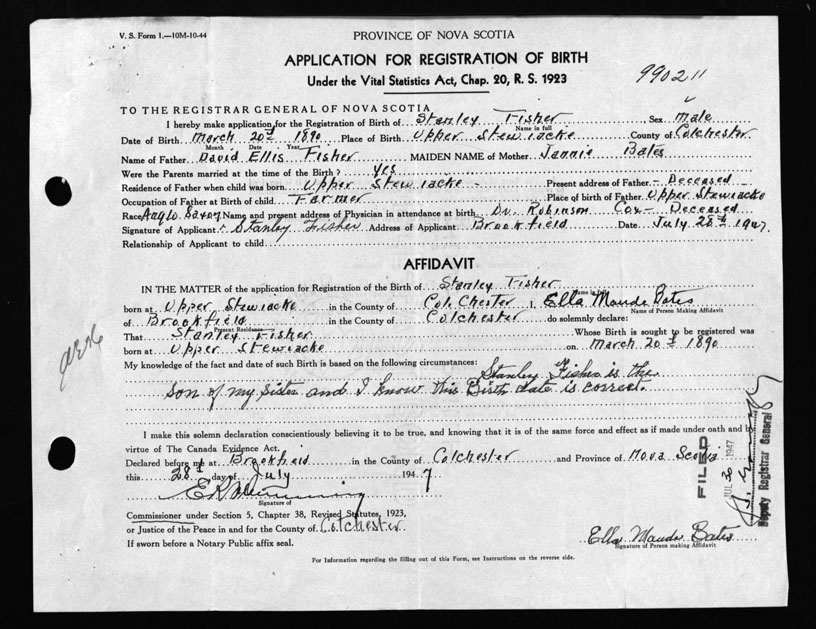 V. S. Form 1.—10M-10-44
PROVINCE OF NOVA SCOTIA
APPLICATION FOR REGISTRATION OF BIRTH
Under the Vital Statistics Act, Chap. 20, R. S. 1923
990211
TO THE REGISTRAR GENERAL OF NOVA SCOTIA
I hereby make application for the Registration of Birth of Stanley Fisher Sex Male
Name in full
Date of Birth March 20th 1890 Place of Birth Upper Stewiacke County of Colchester
Month Date Year
Name of Father David Ellis Fisher MAIDEN NAME of Mother Jannie Bates
Were the Parents married at the time of the Birth? Yes
Residence of Father when child was born Upper Stewiacke Present address of Father - Deceased
Occupation of Father at Birth of child Farmer Place of birth of Father Upper Stewiacke
Race Anglo Saxon Name and present address of Physician in attendance at birth Dr. Robinson Cox - Deceased
Signature of Applicant Stanley Fisher Address of Applicant Brookfield Date July 28th 1947
Relationship of Applicant to child
AFFIDAVIT
IN THE MATTER of the application for Registration of the Birth of Stanley Fisher
Name in full
born at Upper Stewiacke in the County of Colchester I, Ella Maude Bates
Name of Person Making Affidavit
of Brookfield in the County of Colchester do solemnly declare:
Present Residence
That Stanley Fisher Whose Birth is sought to be registered was
born at Upper Stewiacke on March 20th 1890
My knowledge of the fact and date of such Birth is based on the following circumstances: Stanley Fisher is the
son of my sister and I know this Birth date is correct.
I make this solemn declaration conscientiously believing it to be true, and knowing that it is of the same force and effect as if made under oath and by
virtue of The Canada Evidence Act.
Declared before me at Brookfield in the County of Colchester and Province of Nova Scotia
this 28th day of July 1947
Signature of
Commissioner under Section 5, Chapter 38, Revised Statutes, 1923,
or Justice of the Peace in and for the County of Colchester
If sworn before a Notary Public affix seal.
Ella Maude Bates
Signature of Person making Affidavit
For Information regarding the filling out of this Form, see Instructions on the reverse side.
FILED
JUL 30 1947
Deputy Registrar General